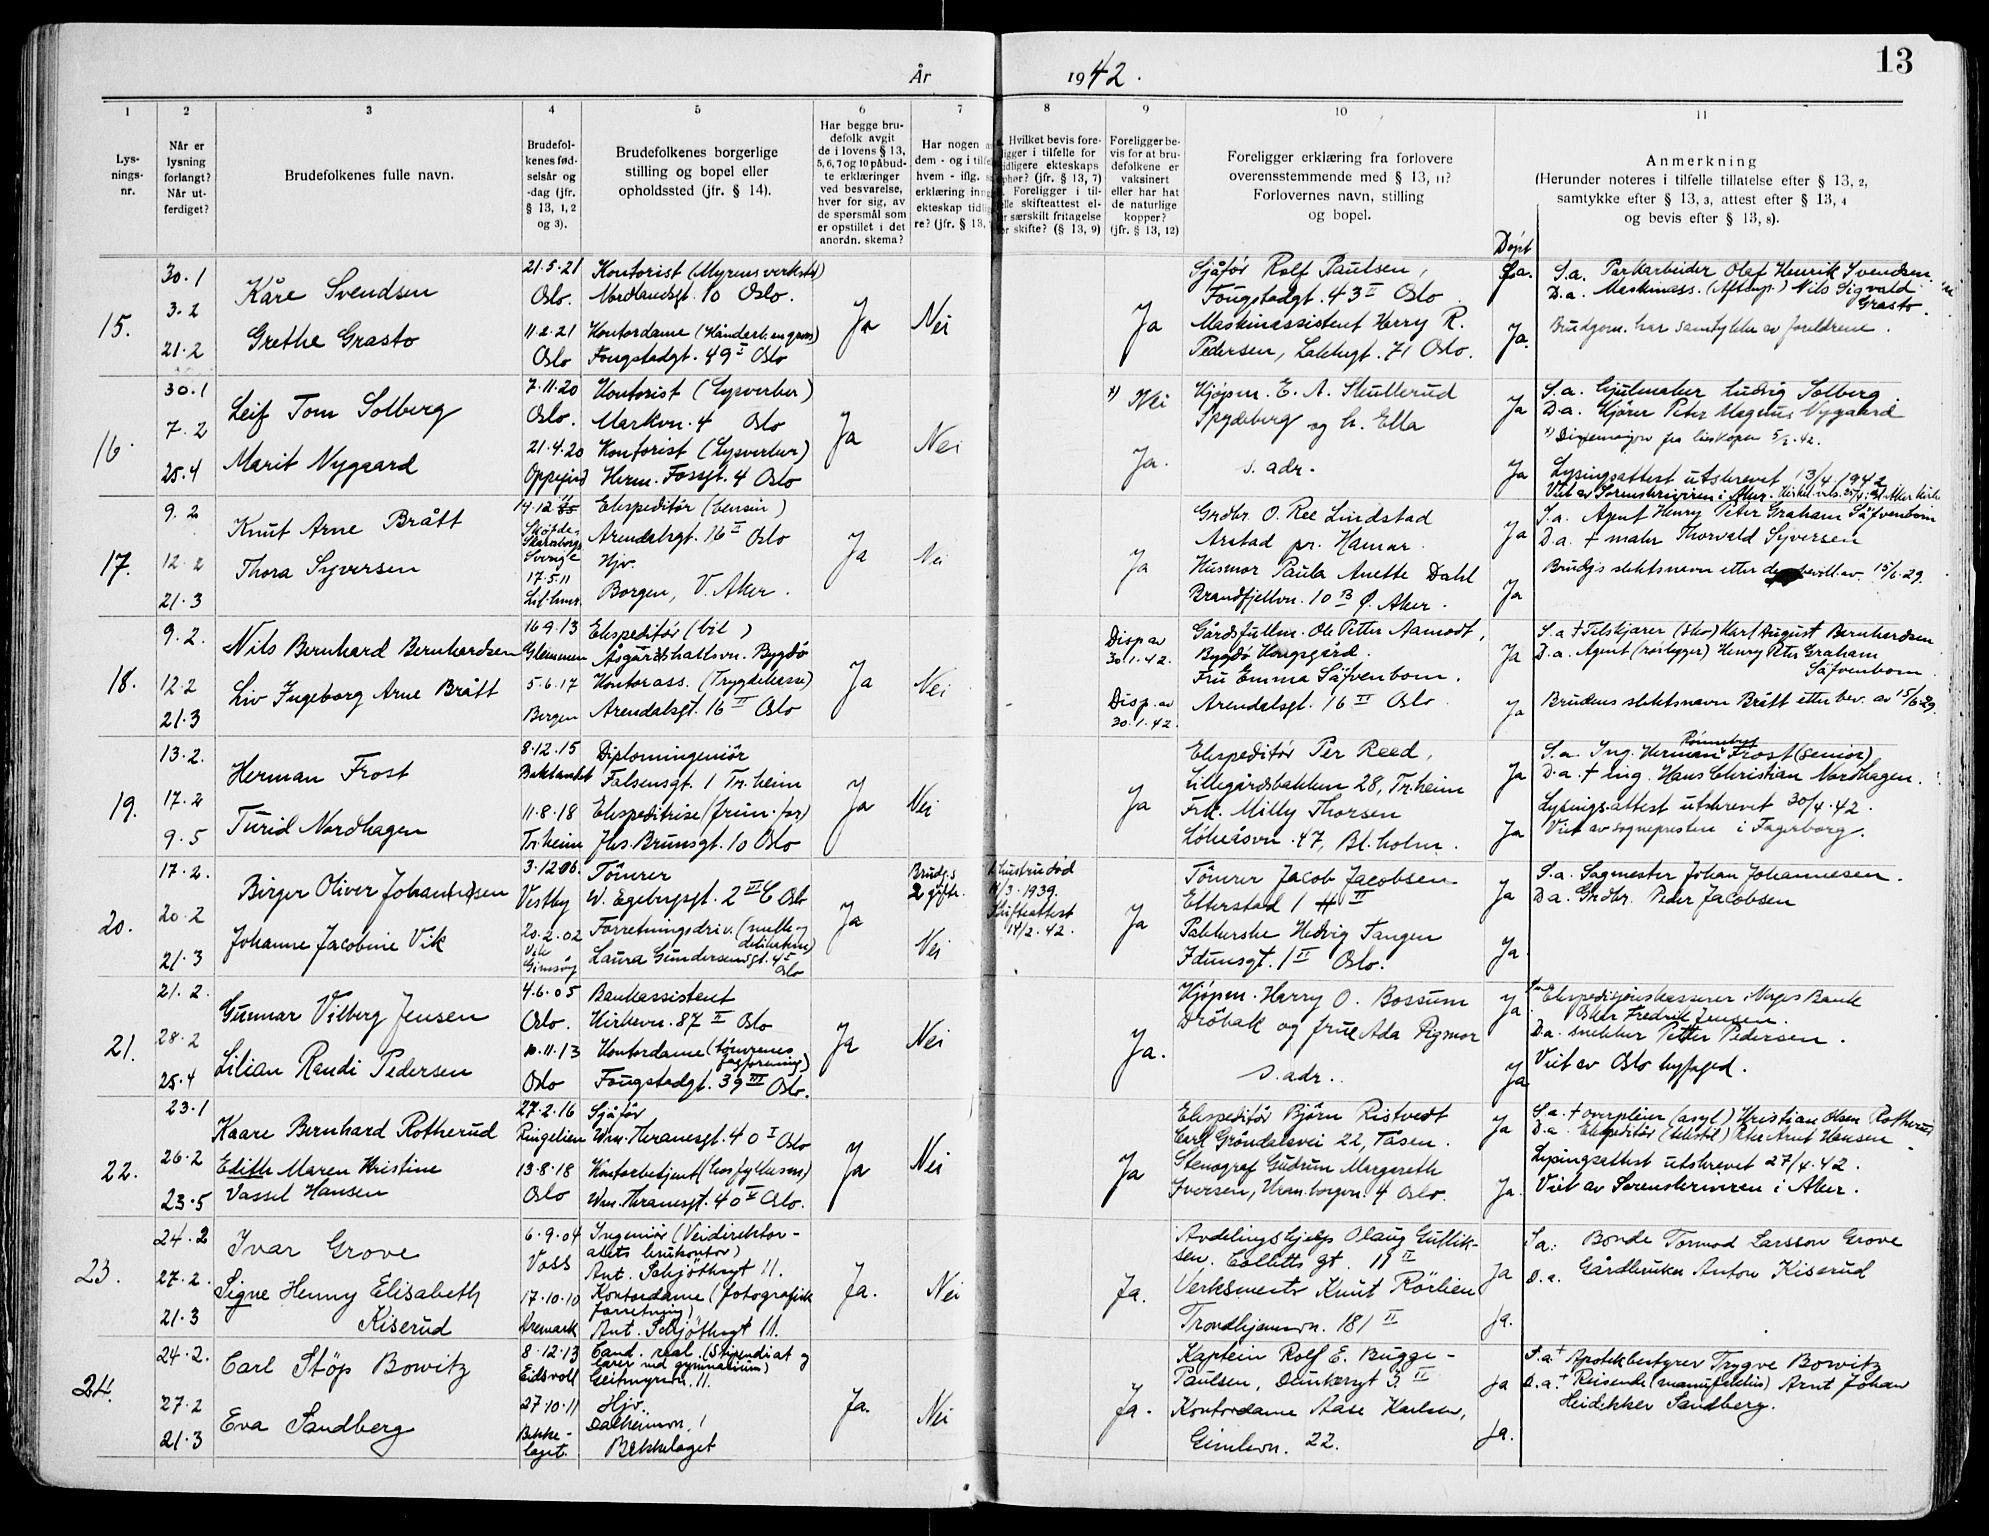 13
År 1942.
1 2 3 4 5 6 7 8 9 10 11
Lys-
nings-
nr.
Når er
lysning
forlangt?
Når ut-
ferdiget?
Brudefolkenes fulle navn.
Brudefol-
kenes fød-
selsår og
-dag (jfr.
§ 13, 1, 2
og 3).
Brudefolkenes borgerlige
stilling og bopel eller
opholdssted (jfr. § 14).
Har begge bru-
defolk avgit
de i lovens § 13,
5, 6, 7 og 10 påbud-
te erklæringer
ved besvarelse,
hver for sig, av
de spørsmål som
er opstillet i det
anordn. skema?
Har nogen a
dem - og i tilfe
hvem - iflg. s
erklæring inng
ekteskap tidlig
re? (jfr. § 13,
Hvilket bevis fore-
ligger i tilfelle for
tidligere ekteskaps
ophør? (jfr. § 13, 7)
Foreligger i til-
felle skifteattest el-
r særskilt fritagelse
for skifte? (§ 13, 9)
Foreligger be-
vis for at bru-
defolkene er
vaksinert
eller har hat
de naturlige
kopper?
(jfr. § 13, 12)
Foreligger erklæring fra forlovere
overensstemmende med § 13, 11?
Forlovernes navn, stilling
og bopel.
Døpt
Anmerkning
(Herunder noteres i tilfelle tillatelse efter § 13, 2,
samtykke efter § 13, 3, attest efter § 13, 4
og bevis efter § 13, 8).
15.
30.1
3.2
21.2
Kåre Svendsen
Grethe Grasto
21.5.21
Oslo.
11.2.21
Oslo
Kontorist (Myrens verksted)
Nordlandsgt. 10 Oslo.
Kontordame
Fougstadgt. 49 I Oslo
Ja
Nei
Ja
Sjåfør Rolf Paulsen,
Fougstadgt. 43 II Oslo
Maskinassistent Herry R.
Pedersen, Lakkegt. 71 Oslo.
Ja.
Ja.
S.a. Parkarbeider Olaf Henrik Svendsen
D.a. Maskinass. (Aftenp.) Nils Sigvald
Grasto.
Brudgom. har samtykke av foreldrene.
16.
30.1
7.2
25.4
Leif Tom Solberg
Marit Nygaard
7.11.20
Oslo.
21.4.20
Oppegård
Kontorist (Lysverker)
Markvn. 4 Oslo
Kontorist (Lysverker)
Herm. Fossgt. 4 Oslo
Ja
Nei
x) Nei
Ja.
Kjøpm. E. A. Skullerud
Spydeberg og h. Ella
s. adr.
Ja
Ja
S.a. Hjulmaker Ludvig Solberg.
D.a. Kjører Peter Magnus Nygaard
x) Dispensasjon fra biskopen 5/2.42.
Lysingsattest utskrevet 13/4 1942
Viet av Sorenskriveren i Aker.
17.
9.2
12.2
21.3
Knut Arne Brått
Thora Syversen
14.12
Skövde,
Skaraborg,
Sverige
17.5.11
Lil.hmr.
Ekspeditør (bensin)
Arendalsgt. 16 II Oslo
Hjv.
Borgen, V. Aker.
Ja
Nei
Ja
Grdbr. O. Ree Lindstad
Arstad pr. Hamar.
Husmor Paula Anette Dahl
Brandfjellvn. 10 B Ø. Aker.
Ja
Ja
S.a. Agent Henry Peter Graham Säfvenbom
D.a. † maler Thorvald Syversen
Brudg's slektsnavn etter bevill. av 15/6.29.
18.
9.2.
12.2
21.3
Nils Bernhard Bernhardsen
Liv Ingeborg Arne Brått
16.9.13
Glemmen
5.6.17
Bergen
Ekspeditør (bil)
Åsgårdshallsvn. Bygdø
Kontorass. (Trygdekasse)
Arendalsgt. 16 II Oslo
Ja
Nei
Disp av
30.1.42.
Disp. av
30.1.42.
Gårdsfullm. Ole Petter Aamodt,
Bygdø Kongsgård.
Fru Emma Säfvenbom.
Arendalsgt. 16 II Oslo.
Ja
Ja
S.a † Tilskjærer (sko) Karl August Bernhardsen
D.a. Agent (rørlegger) Henry Peter Graham
Säfvenbom
Brudens slektsnavn Brått etter bev. av 15/6 29.
19.
13.2.
17.2
9.5
Herman Frost
Turid Nordhagen
8.12.15
Baklandet
11.8.18
Tr.heim
Diplomingeniør
Falsensgt. 1 Tr.heim
Ekspeditrise
Jhs. Brunsgt. 10 Oslo
Ja
Nei
Ja
Ekspeditør Per Reed,
Lillegårdsbakken 28, Tr.heim
Frk. Milly Thorsen
47, Bl.holm.
Ja
Ja
Rönneberg
S.a. Ing. Herman Frost (senior)
D.a. † ing. Hans Christian Nordhagen.
Lysingsattest utskrevet 30/4.42.
Viet av sognepresten i Fagerborg.
20.
17.2.
20.2
21.3
Birger Oliver Johannesen
Johanne Jacobine Vik
3.12.06.
Vestby
20.2.02
Vik
Gimsøy
Tømrer
W. Egebergsgt. 2 III C Oslo
Forretningsdriv. (melk og
delikatesse)
Laura Gundersensgt. 4 I
Oslo
Ja
Brudg.s
2 gifte.
Nei
1. hustru død
/3.1939.
Skifteattest
14/2.42.
Ja
Tømrer Jacob Jacobsen
Etterstad 1 H II
Pakkerske Hedvig Tangen
Idunsgt. 1 II Oslo.
Ja
Ja.
S.a. Sagmester Johan Johannesen.
D.a. Grdbr. Peder Jacobsen
21.
21.2.
28.2
25.4
Gunnar Vilberg Jensen
Lilian Randi Pedersen
4.6.05
Oslo.
10.11.13
Oslo
Bankassistent
Kirkevn. 87 II Oslo
Kontordame (tømrenes
fagforening)
Fougstadgt. 39 III Oslo.
Ja
Nei
Ja.
Kjøpm. Harry O. Bossum
Drøbak og frue Ada Rigmor
s. adr.
Ja
Ja
S.a. Ekspedisjonskasserer i Norges Bank
Oskar Fredrik Jensen.
D.a. snekker Petter Pedersen.
Viet av Oslo byfoged.
22.
23.1
26.2
23.5
Kaare Bernhard Rotherud
Edith Maren Kristine
Vassel Hansen
27.2.16
Ringelien
13.8.18
Oslo
Sjåfør
Wm. Thranesgt. 40 I Oslo
Kontorbetjent
Wm. Thranesgt. 40 II Oslo.
Ja
Nei
Ja
Ekspeditør Bjørn Ristvedt
Carl Grøndalsvei 22, Tåsen.
Stenograf Gudrun Margareth
Iversen, 4 Oslo.
Ja
Ja.
S.a. † overpleier (asyl) Kristian Olsen Rotherud
D.a. Ekspeditør (tekstil) Peter Arnt Hansen
Lysingsattest utskrevet 27/4.42.
Viet av Sorenskriveren i Aker.
23.
24.2
27.2.
21.3
Ivar Grove
Signe Henny Elisabeth
Kiserud
6.9.04
Voss
17.10.10
Aremark
Ingeniør (Veidirektor-
atets brukontor)
Ant. Schjøthsgt 11.
Kontordame (fotografisk
forretning)
Ant. Schjøthsgt 11.
Ja.
Nei
Ja.
Avdelingshjelp Olaug Gullik-
sen. Colletts gt. 11 II
Verksmester Knut Rørlien
Trondhjemsvn. 181 II
Ja
Ja.
S.a: Bonde Tormod Larsson Grove
D.a. Gårdbruker Anton Kiserud
24.
24.2.
27.2
21.3
Carl Støp Bowitz
Eva Sandberg
8.12.13
Eidsvoll
27.10.11
Bekke-
laget.
Cand. real. (Stipendiat og
lærer ved gymnasium)
Geitmyrsvn. 11.
Hjv.
Dalheimvn. 1
Bekkelaget
Ja.
Nei
Ja.
Kaptein Rolf E. Bugge-
Paulsen, Dunkersgt 3. II
Kontordame Aase Karlsen,
Gimlevn. 22.
Ja
Ja.
S.a.† Apotekbestyrer Trygve Bowitz
D.a.† Reisende (manufaktur) Arnt Johan
Heidekker Sandberg.